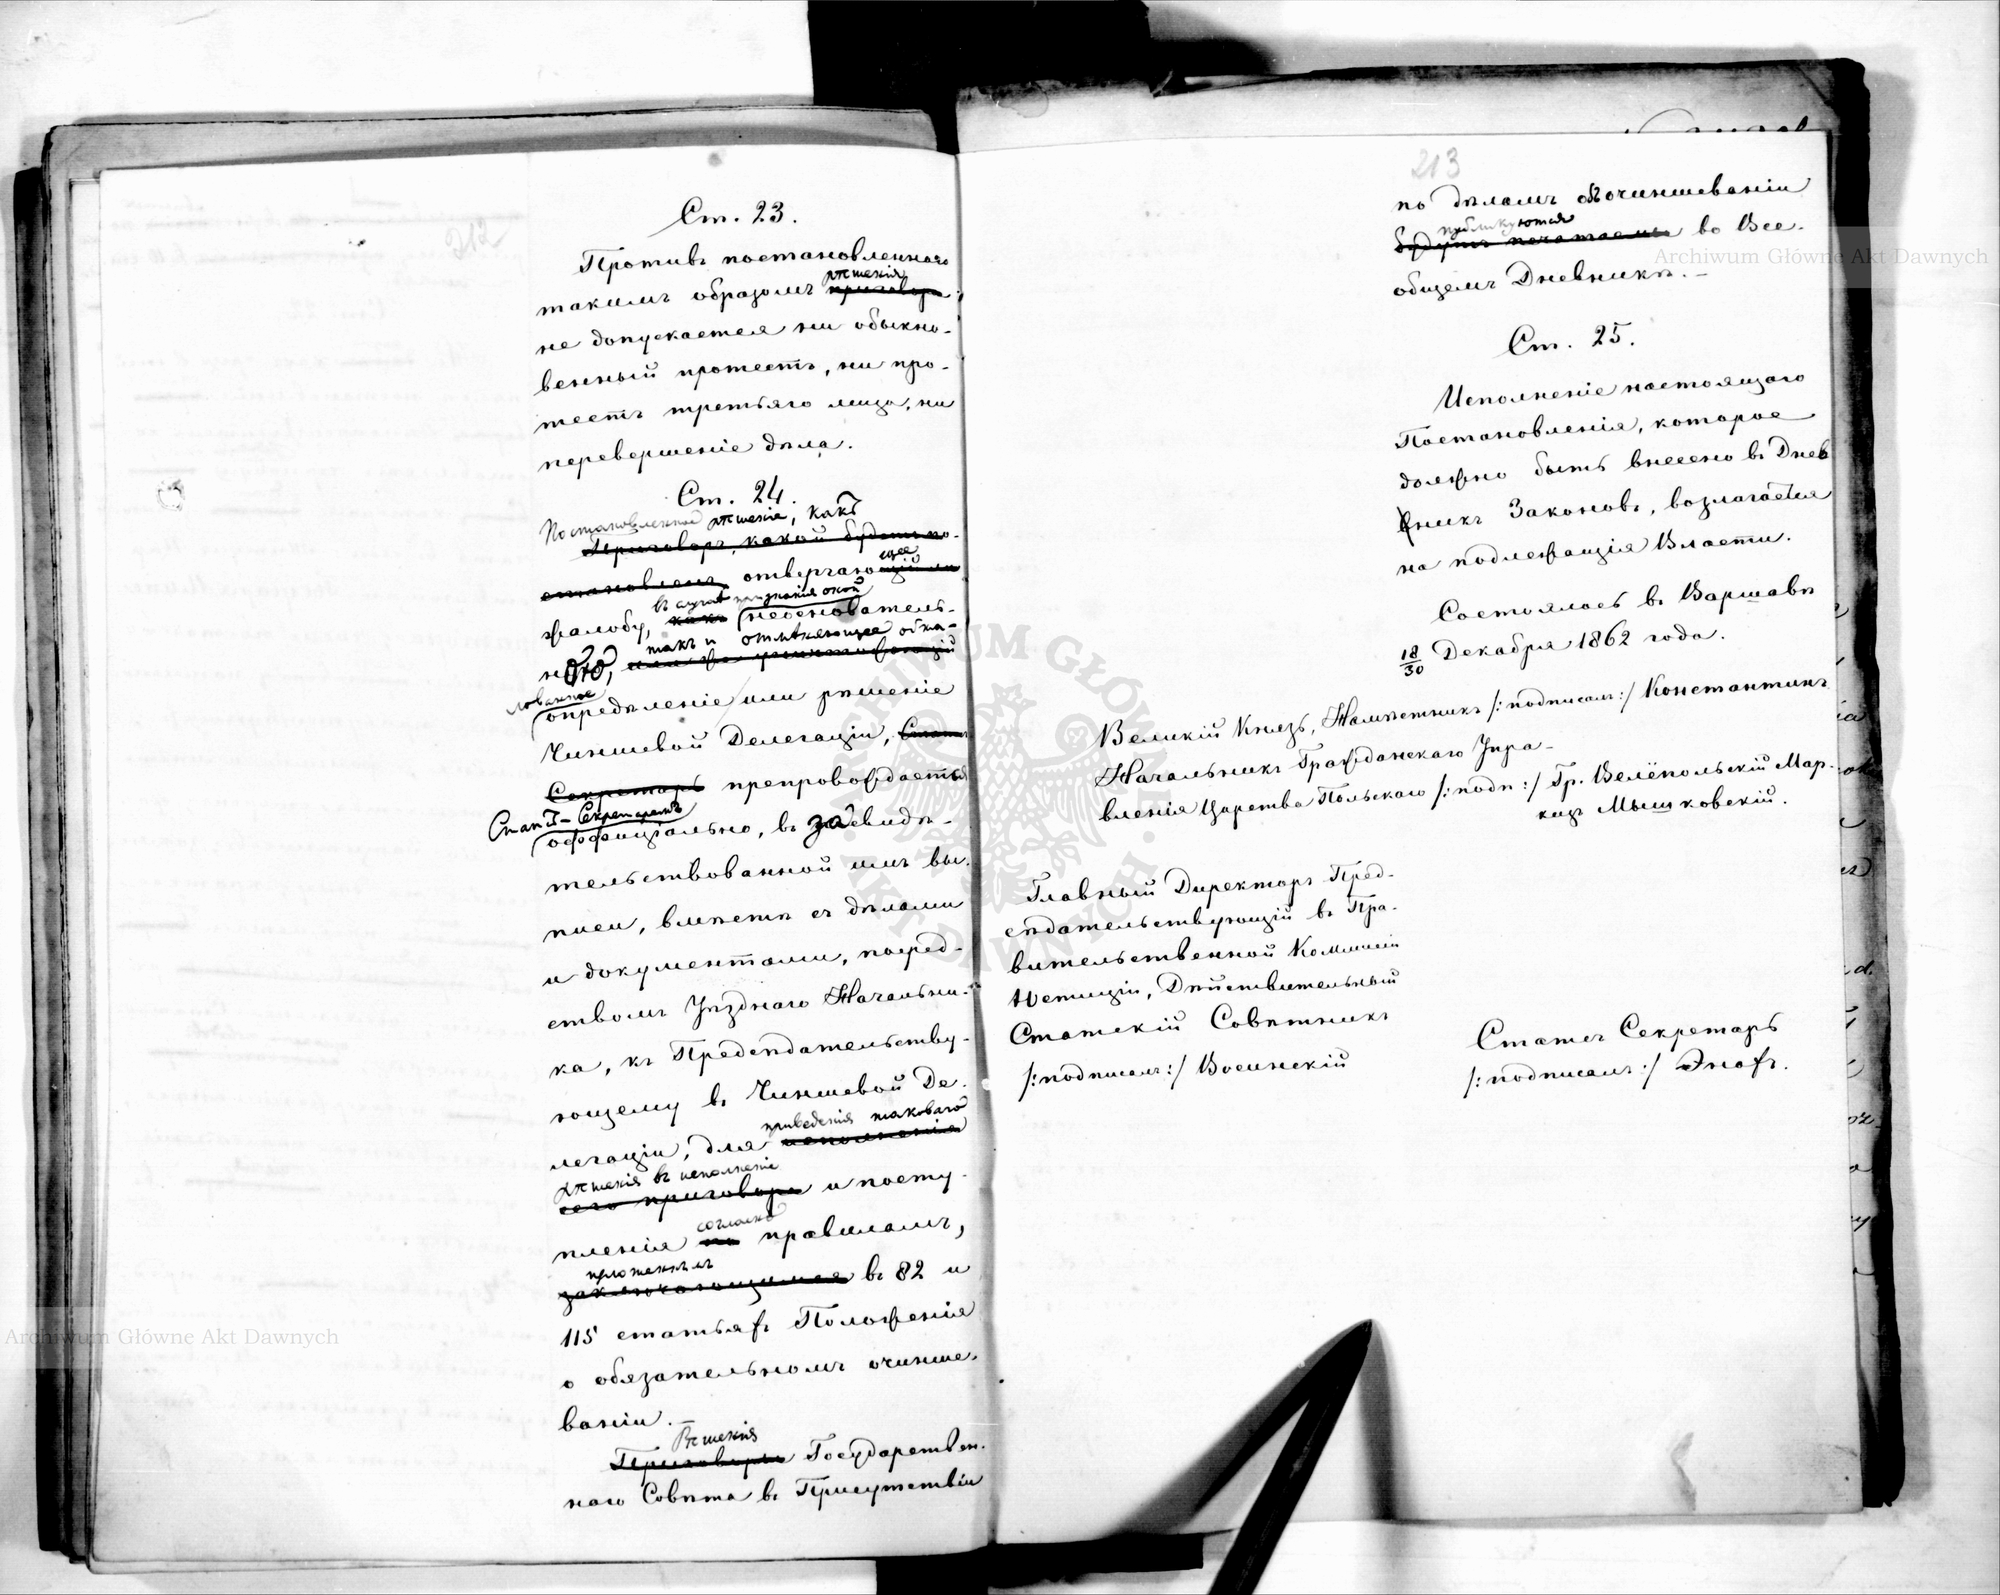 Ст. 23.
Противъ постановленнаго
такимъ образомъ рѣшенія приговора,
не допускается ни обыкно-
венный протестъ, ни про-
тестъ третьяго лица, ни
перевершеніе дѣла.
Ст. 24.
Постановленное рѣшеніе, какъ
Приговоръ, какой будетъ по-
становленъ, отвергающее
жалобу, въ случаѣ признанія оной неосновательно-
ною, такъ и отмѣняющее обжа-
лованное
опредѣленіе или рѣшеніе
Чиншевой Делегаціи, Статсъ
Секретарь препровождается
Статсъ-Секретаремъ
оффиціально, въ засвидѣ-
тельствованной имъ вы-
писи, вмѣстѣ съ дѣлами
и документами, посред-
ствомъ Уѣзднаго Начальни-
ка, къ Предсѣдательству-
ющему въ Чиншевой Де-
легаціи, для приведенія таковаго исполненія
рѣшенія въ исполненіе
сего приговора и посту-
пленія согласно по правиламъ,
изложеннымъ
заключающимся въ 82 и
115 статьяхъ Положенія
о обязательномъ очинше-
ваніи.
Рѣшенія
Приговоры Государствен-
наго Совѣта въ Присутствіи
213
по дѣламъ объ очиншеваніи
публикуются
будутъ печатаемы во Все-
общемъ Дневникѣ.—
Ст. 25.
Исполненіе настоящаго
Постановленія, которое
должно быть внесено въ Днев
никъ Законовъ, возлагается
на подлежащія Власти.
Состоялось въ Варшавѣ
18/30 Декабря 1862 года.
Великій Князь, Намѣстникъ /:подписалъ:/ Константинъ
Начальникъ Гражданскаго Упра-
вленія Царства Польскаго /:подп:/ Гр. Велёпольскій Мар-
кизъ Мышковскій.
Главный Директоръ Пред-
сѣдательствующій въ Пра-
вительственной Коммисіи
Юстиціи, Дѣйствительный
Статскій Совѣтникъ
/:подписалъ:/ Восинскій
Статсъ Секретарь
/:подписалъ:/ Энохъ.
212
Archiwum Główne Akt Dawnych
Archiwum Główne Akt Dawnych
ARCHIWUM GŁÓWNE AKT DAWNYCH